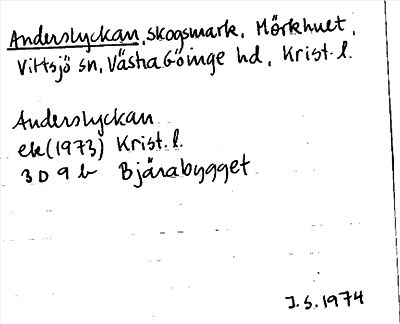 Anderslyckan, skogsmark, Mörkhult,
Vittsjö sn, Västra Göinge hd, Krist. l.
Anderslyckan
ek (1973) Krist. l.
3 D 9 b Bjärabygget
J. S. 1974